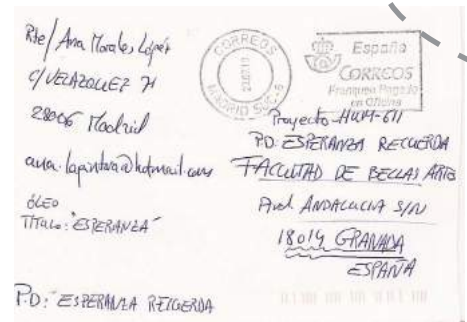 Rte/ Ana Morales López
C/ VELAZQUEZ 71
28006 Madrid
ana.lapintora@hotmail.com
ÓLEO
TÍTULO: "ESPERANZA"
P.D: "ESPERANZA RECUERDA
CORREOS
MADRID SUC-
España
CORREOS
Franqueo Pagado
en Oficina
Proyecto-HUM-611
P.D: ESPERANZA RECUERDA
FACULTAD DE BELLAS ARTES
Avd. ANDALUCIA S/N
18014 GRANADA
ESPAÑA